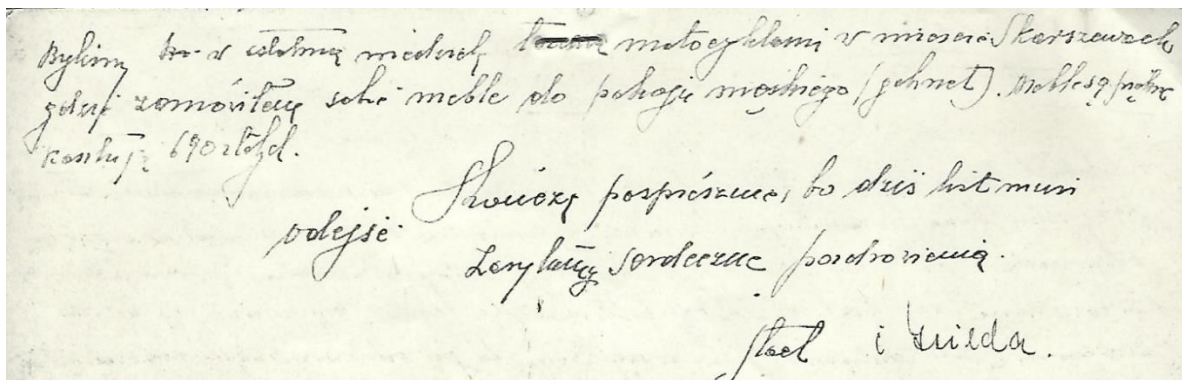 Byliśmy w ostatnią niedzielę motocyklami w mieście Skarszewach
gdzie zamówiłem sobie meble do pokoju męskiego (gabinet). Meble są piękne
kosztują 690 zł.
Skończę pospiesznie, bo dziś list musi
odejść
Zasyłamy serdeczne pozdrowienia.
i